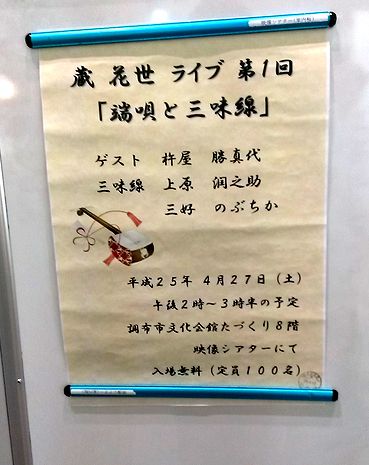 蔵 花世 ライブ 第1回
「端唄と三味線」
ゲスト 杵屋 勝真代
三味線 上原 潤之助
三好 のぶちか
平成25年 4月27日（土）
午後2時～3時半の予定
調布市文化会館たづくり8階
映像シアターにて
入場無料（定員100名）